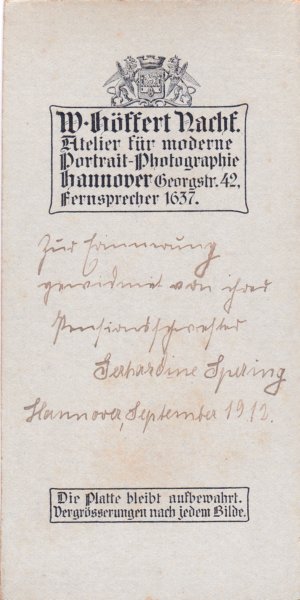 W. Höffert Nachf.
Atelier für moderne
Portrait-Photographie
Hannover Georgstr. 42,
Fernsprecher 1637.
Zur Erinnerung
gewidmet von ihrer
Pensionsschwester
Gerhardine Spering
Hannover, September 1912.
Die Platte bleibt aufbewahrt.
Vergrösserungen nach jedem Bilde.